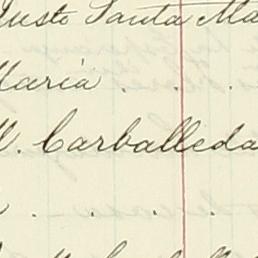 Justo Santa Ma
Maria . . .
M. Carballeda